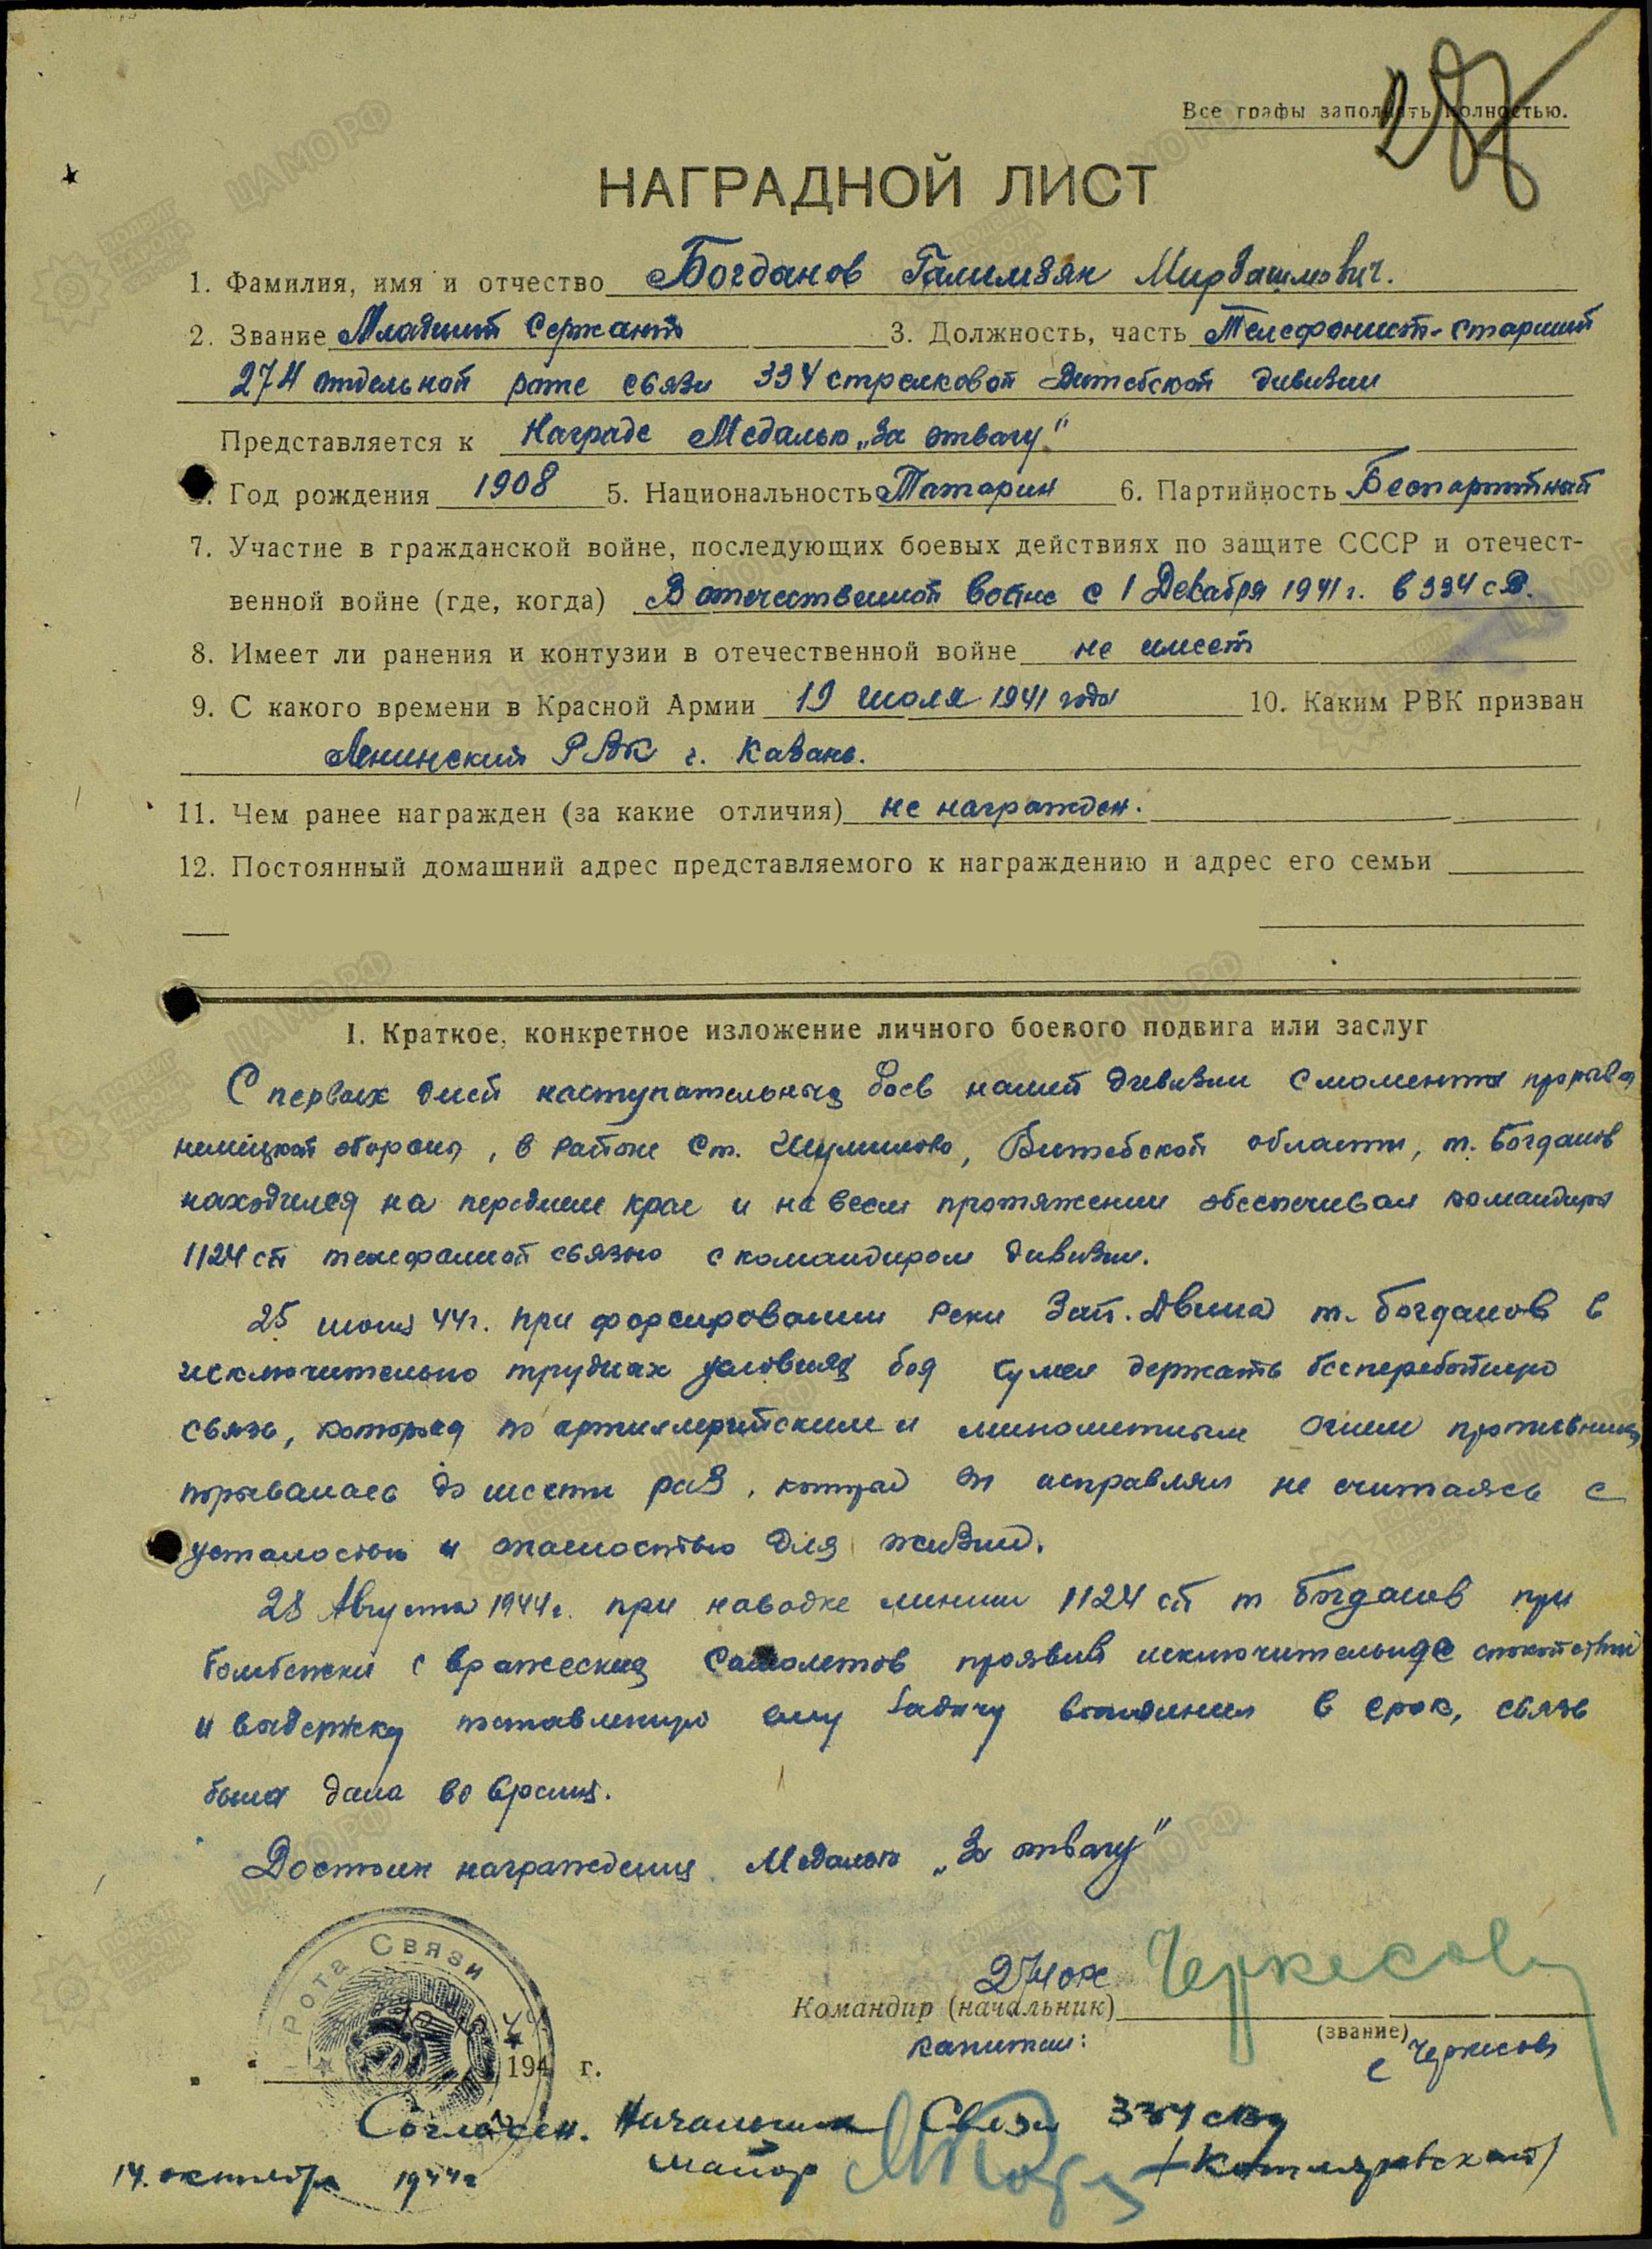 Все графы заполнять полностью.
НАГРАДНОЙ ЛИСТ
1. Фамилия, имя и отчество Богданов Галимзян
2. Звание Младший Сержант 3. Должность, часть Телефонист-старший
274 отдельной роте связи 334 стрелковой Витебской дивизии
Представляется к Награде Медалью „За отвагу"
Год рождения 1908 5. Национальность Татарин 6. Партийность Беспартийный
7. Участие в гражданской войне, последующих боевых действиях по защите СССР и отечест-
венной войне (где, когда) В отечественной войне с 1 Декабря 1941 г. в 334 сд.
8. Имеет ли ранения и контузии в отечественной войне не имеет
9. С какого времени в Красной Армии 19 июля 1941 года 10. Каким РВК призван
Ленинский РВК г. Казань.
11. Чем ранее награжден (за какие отличия) не награжден.
12. Постоянный домашний адрес представляемого к награждению и адрес его семьи
I. Краткое, конкретное изложение личного боевого подвига или заслуг
С первых дней наступательных боев нашей дивизии с момента прорыва
немецкой обороны, в районе ст. Шумилово, Витебской области, т. Богданов
находился на переднем крае и на всем протяжении обеспечивал командира
1124 сп телефонной связью с командиром дивизии.
25 июня 44 г. при форсировании реки Зап. Двина т. Богданов в
исключительно трудных условиях боя сумел держать бесперебойную
связь, которая по артиллерийским и минометным огнем противника
порывалась до шести раз, которую он исправлял не считаясь с
усталостью и опасностью для жизни.
28 Августа 1944 г. при наводке линии 1124 сп т Богданов при
бомбежки с вражеских самолетов проявив исключительное спокойствие
и выдержку поставленную ему задачу выполнил в срок, связь
была дана во время.
Достоин награждения Медалью „За отвагу"
Рота Связи
274 орс
Командир (начальник) Черкесов
(звание)
капитан: Черкесов
194 г.
Согласен. Начальник Связи 334 свд
майор /Котляревский/
14. октября 1944 г